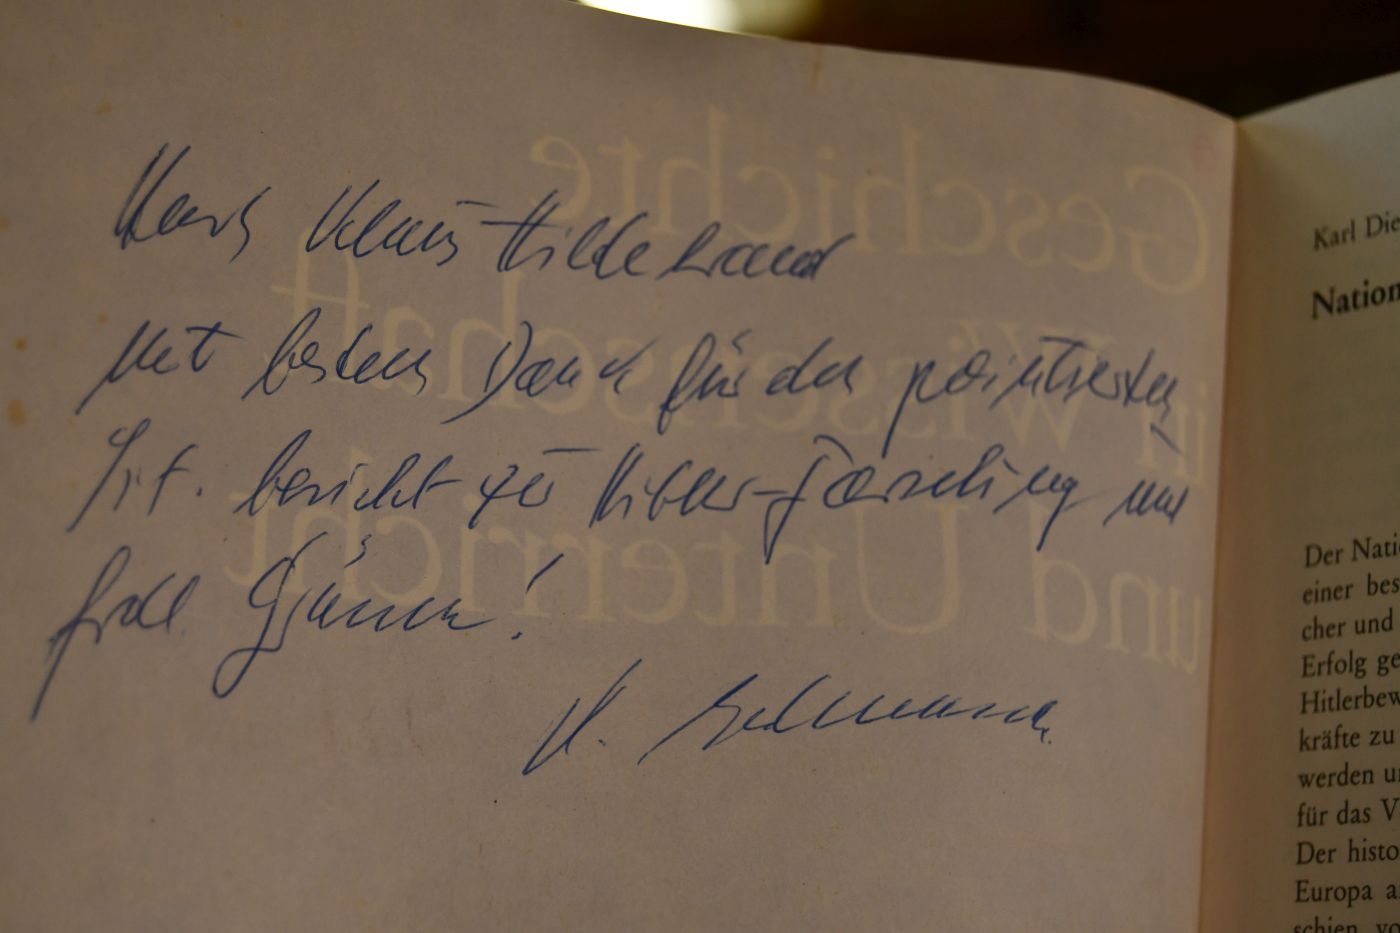 Klaus Hildebrand
Mit bestem Dank für den pointierten
Lit. bericht zur Hitler-Forschung und
fredl. Grüssen!
K.
Geschichte
in Wissenschaft
und Unterricht
Karl Die
Nation
Der Nati
einer bes
cher und
Erfolg ge
Hitlerbew
kräfte zu
werden u
für das V
Der histo
Europa a
schien vo